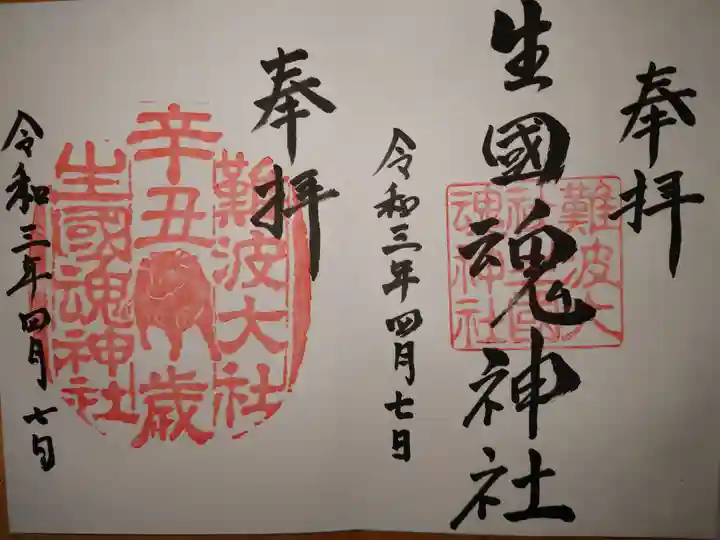 奉拝
難波大
社生國
魂神社
生國魂神社
令和三年四月七日
奉拝
難波大社
辛丑歳
生國魂神社
令和三年四月七日